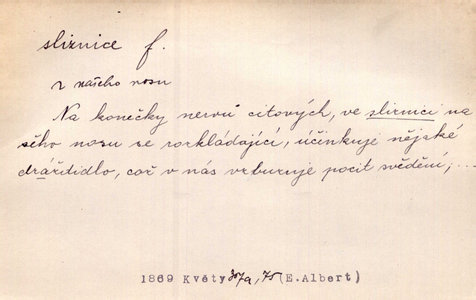 sliznice f.
z našeho nosu
Na konečky nervů citových, ve sliznici na
šeho nosu se rozkládající, účinkuje nějaké
dráždidlo, což v nás vzbuzuje pocit svědění; ...
1869 Květy 307a, 75 (E.Albert)